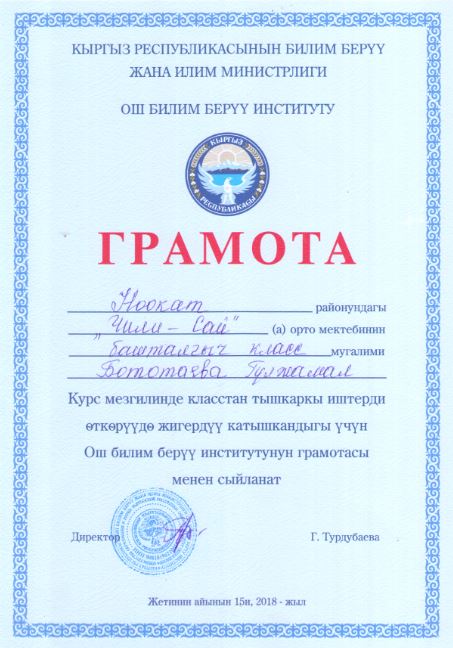 КЫРГЫЗ РЕСПУБЛИКАСЫНЫН БИЛИМ БЕРҮҮ
ЖАНА ИЛИМ МИНИСТРЛИГИ
ОШ БИЛИМ БЕРҮҮ ИНСТИТУТУ
КЫРГЫЗ
РЕСПУБЛИКАСЫ
ГРАМОТА
Ноокат районундагы
"Чили-Сай" (а) орто мектебинин
башталгыч класс мугалими
Бототаева Гулжамал
Курс мезгилинде класстан тышкаркы иштерди
өткөрүүдө жигердүү катышкандыгы үчүн
Ош билим берүү институтунун грамотасы
менен сыйланат
Директор Г. Турдубаева
Жетинин айынын 15и, 2018 - жыл